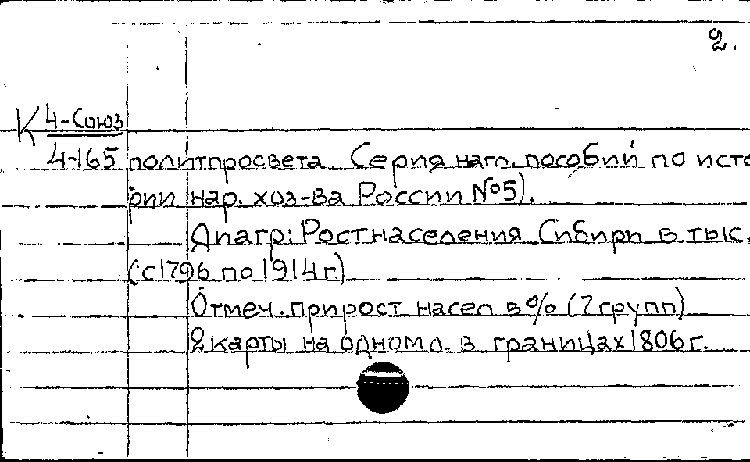 2.
К 4-Союз
4-165 политпросвета. Серия нагл. пособий по исто
рии нар. хоз-ва России №5).
Диагр: Рост населения Сибири в тыс.
(с 1796 по 1914 г)
Отмеч. прирост насел в % (7 групп)
2 карты на одном л. в границах 1806 г.